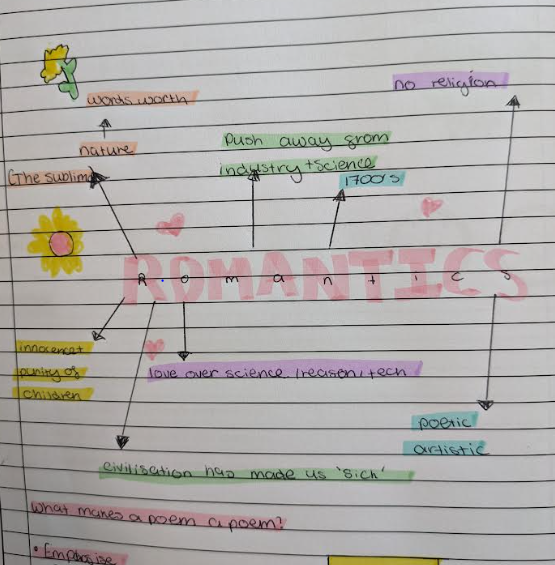 no religion
words worth
Push away from
nature
industry + science
(The sublime)
1700's
ROMANTICS
innocence +
purity of
children
love over science / reason, tech
poetic
artistic
civilisation has made us 'sick'
What makes a poem a poem?
• Emphasise